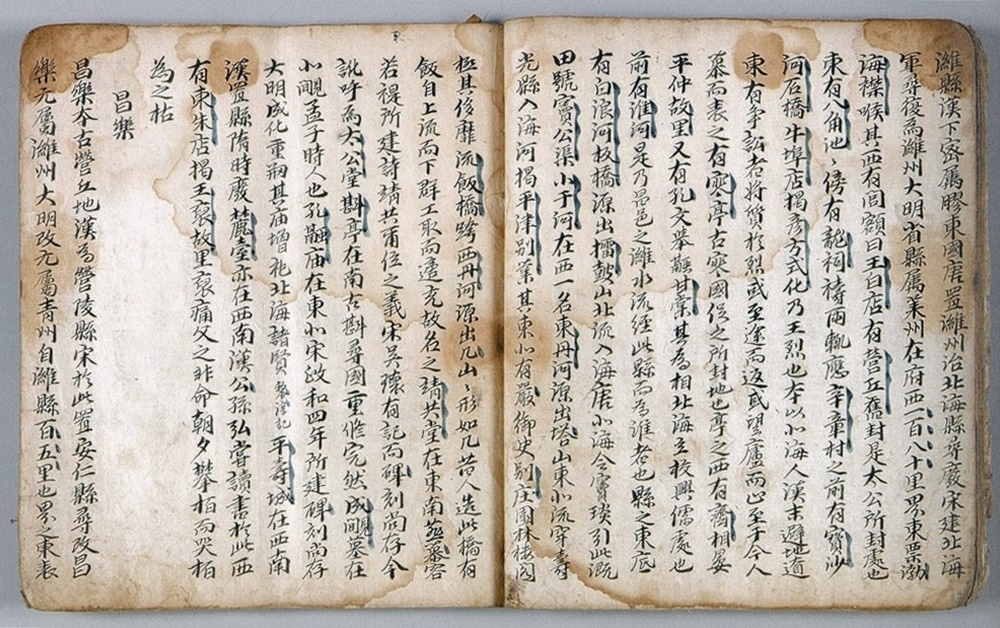 濰縣漢下密屬膠東國唐置濰州治北海縣尋廢宋建北海
軍尋復為濰州大明省縣屬萊州在府西一百八十里界東票渤
海襟喉其西有閭額曰王白店有營丘舊封是太公所封處也
東有八角池池傍有龍祠禱雨輒應辛章村之前有寶沙
河石橋牛埠店揭彥方式化乃王烈也本以小海人漢末避地遼
東有爭訟者將質於烈或至途而返或望廬而止至于今人
慕而表之有寒亭古寒國促之所封地也亭之西有齊相晏
平仲故里又有孔文舉融甘棠其為相北海立校興儒處也
前有淮河是乃昌邑之濰水流經此縣而為淮者也縣之東底
有白浪河板橋源出擂皷山北流入海唐小海令竇琰引此溉
田號竇公渠小于河在西一名東丹河源出塔山東北流穿壽
光縣入海河揭平津别業其東北有嚴御史别庄園林樓閣
極其侈靡流飯橋跨西丹河源出几山山形如几昔人造此橋有
飯自上流而下群工取而遣充故名之靖共堂在東南燕慕容
若禔所建詩靖共爾位之義宋吳瓌有記而碑刻尚存今
訛呼為太公堂斟亭在南古斟尋國一重修完然成覸墓在
小覸孟子時人也孔融庙在東北宋政和四年所建碑刻尚存
大明成化重剏其庙增祀北海諸賢 平壽城在西南
漢置縣隋時廢麓臺亦在西南漢公孫弘嘗讀書於此西
有東朱店揭王裒故里裒痛父之非命朝夕攀柏而哭柏
為之枯
昌樂
昌樂本古營丘地漢為營陵縣宋於此置安仁縣尋改昌
樂元屬濰州大明改元屬青州自濰縣百五里也界之東表